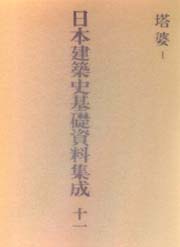 塔婆 I
日本建築史基礎資料集成 十一